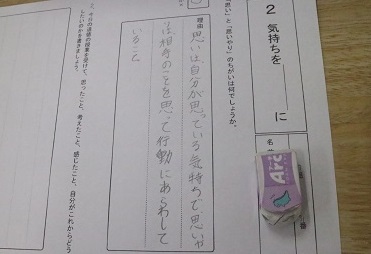 2 気持ちを に
名
「思い」と「思いやり」のちがいは何でしょうか。
理由
思いは、自分が思っている気持ちで、思いや
りは相手のことを思って行動にあらわして
いること
2、今日の道徳の授業を受けて、思ったこと、考えたこと、感じたこと、自分がこれからどう
したいのかを書きましょう。
Arc